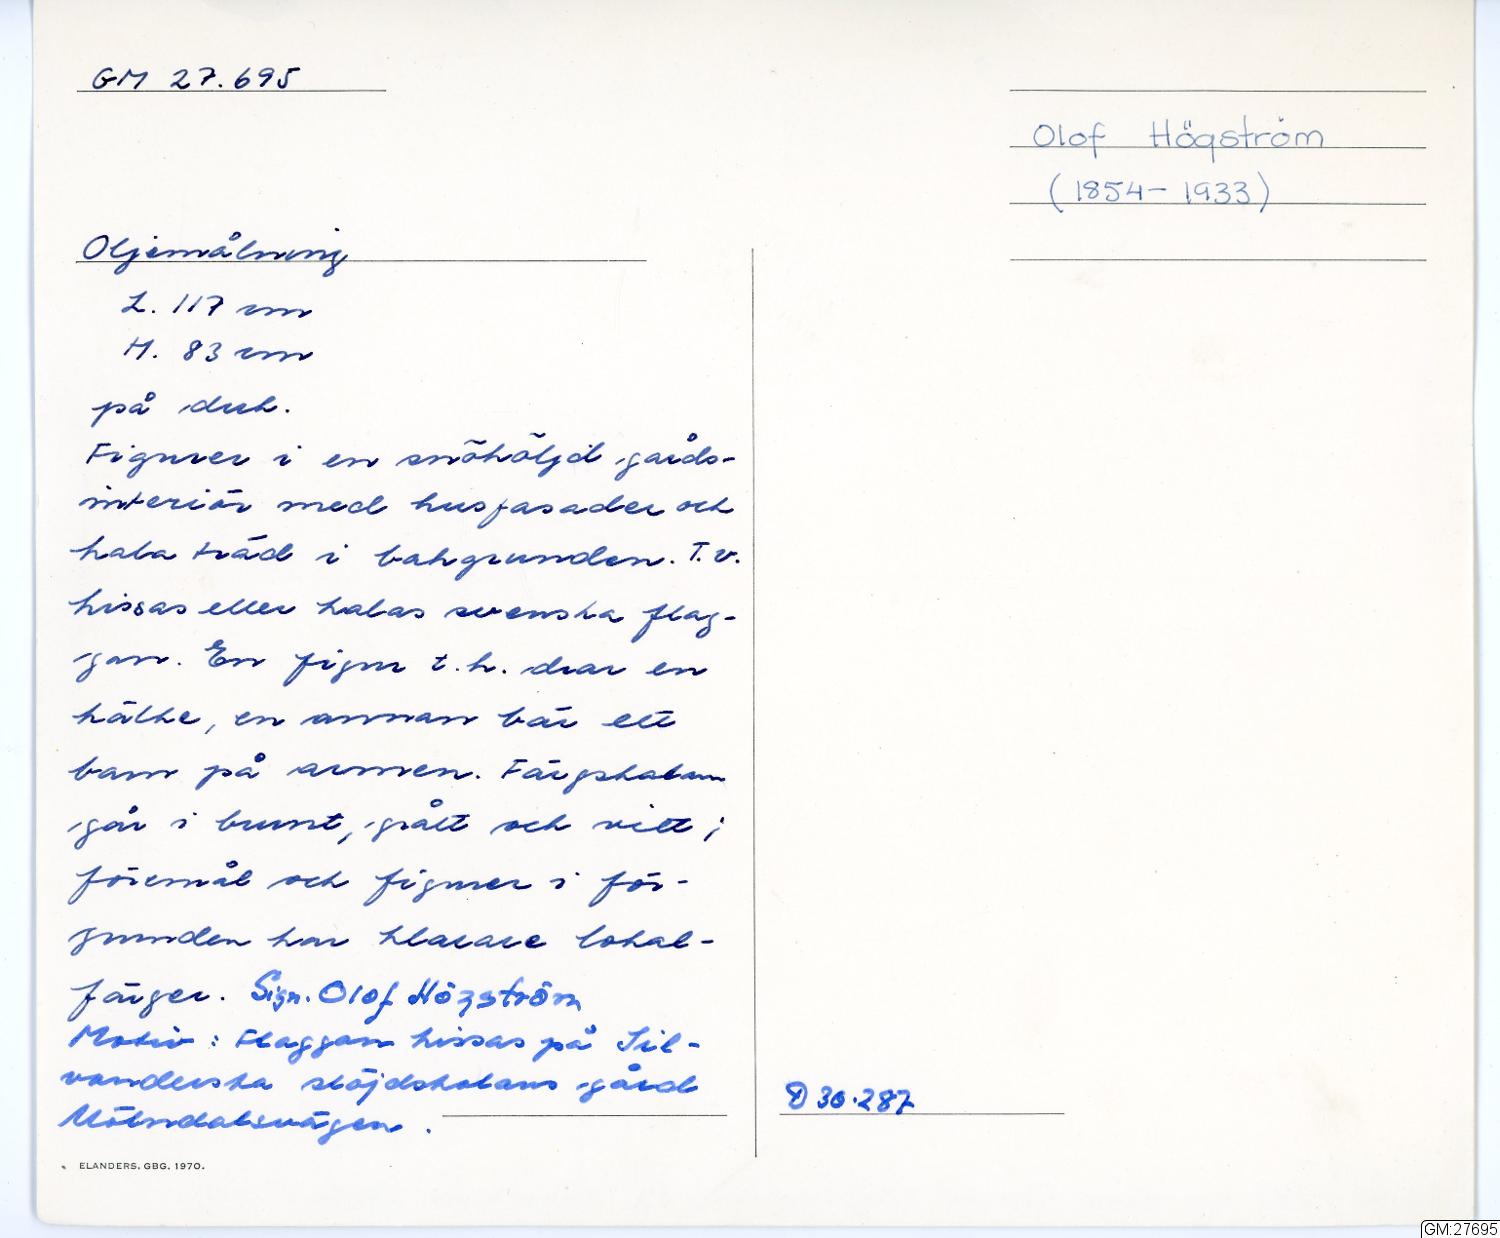 GM 27.695
Olof Högström
(1854-1933)
Oljemålning
L. 117 cm
H. 83 cm
på duk.
Figurer i en snöhöljd gårds-
interiör med husfasader och
kala träd i bakgrunden. T.v.
hissas eller halas svenska flag-
gan. En figur t.h. drar en
kälke, en annan bär ett
barn på armen. Färgskalan
går i brunt, grått och vitt;
föremål och figurer i för-
grunden har klarare lokal-
färger. Sign. Olof Högström
Motiv: Flaggan hissas på Sil-
vanderska slöjdskolans gård
Mölndalsvägen.
D 30.287
ELANDERS. GBG. 1970.
GM:27695